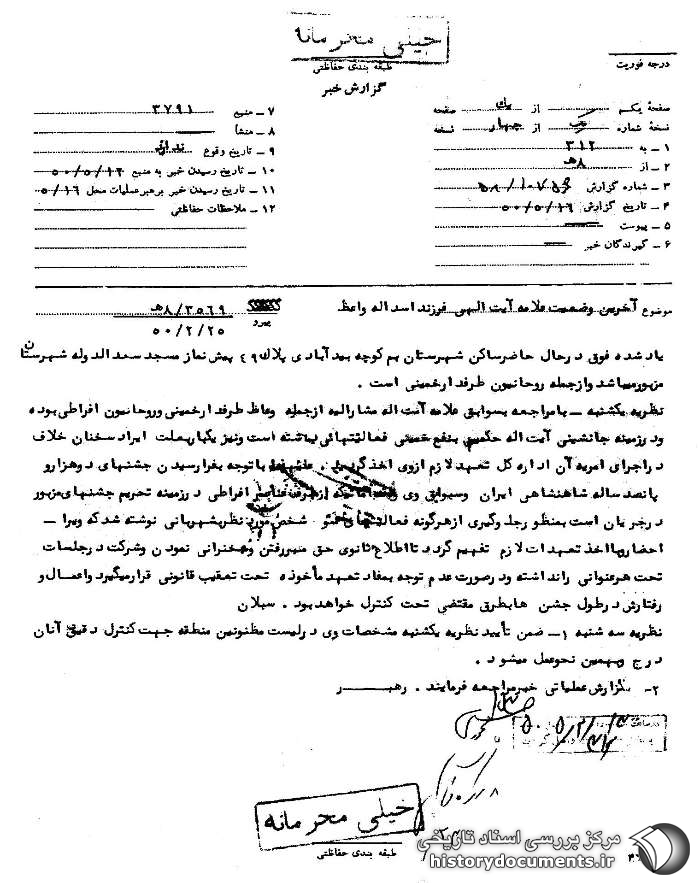 خیلی محرمانه
طبقه بندی حفاظتی
گزارش خبر
درجه فوریت
صفحهٔ یکم از یک صفحه
نسخهٔ شماره یک از چهار نسخه
۱ ـ به ۳۱۲
۲ ـ از ۸ﻫ
۳ ـ شماره گزارش
۴ ـ تاریخ گزارش ۵۰/۵/۱۶
۵ ـ پیوست
۶ ـ گیرندگان خبر
۷ ـ منبع ۳۷۹۱
۸ ـ منشأ
۹ ـ تاریخ وقوع ندارد
۱۰ ـ تاریخ رسیدن خبر به منبع ۵۰/۵/۱۶
۱۱ ـ تاریخ رسیدن خبر برهبر عملیات محل ۵/۱۶
۱۲ ـ ملاحظات حفاظتی
موضوع آخرین وضعیت علامه آیت الهی فرزند اسد اله واعظ
پیرو ۸/۳۵۶۹ﻫ
۵۰/۲/۲۵
یاد شده فوق در حال حاضر ساکن شهرستان بم کوچه بید آبادی پلاک ۴۹ پیش نماز مسجد سعد الدوله شهرستان
مزبور میباشد و از جمله روحانیون طرفدار خمینی است .
نظریه یکشنبه ـ با مراجعه بسوابق علامه آیت اله مشارالیه از جمله وعاظ طرفدار خمینی و روحانیون افراطی بوده
و در زمینه جانشینی آیت اله حکیم بنفع خمینی فعالیتهائی داشته است و نیز یکبار بعلت ایراد سخنان خلاف
در اجرای امریه آن اداره کل تعهد لازم از وی اخذ گردید . با توجه بفرا رسیدن جشنهای دوهزار و
پانصد ساله شاهنشاهی ایران وسوابق وی که از طرف عناصر افراطی در زمینه تحریم جشنهای مزبور
در جریان است بمنظور جلوگیری از هرگونه فعالیتهای شخص مورد نظر بشهربانی نوشته شد که ویرا ـ
احضار و با اخذ تعهدات لازم تفهیم گردد تا اطلاع ثانوی حق منبر رفتن و سخنرانی نمودن و شرکت در جلسات
تحت هر عنوانی را نداشته و در صورت عدم توجه بمفاد تعهد مأخوذه تحت تعقیب قانونی قرار میگیرد و اعمال و
رفتارش در طول جشن ها بطرق مقتضی تحت کنترل خواهد بود . سبلان
نظریه سه شنبه ۱ ـ ضمن تأیید نظریه یکشنبه مشخصات وی در لیست مظنونین منطقه جهت کنترل دقیق آنان
درج و بهمین نحو عمل میشود .
۲ ـ بگزارش عملیاتی خبر مراجعه فرمایند . رهبر
خیلی محرمانه
طبقه بندی حفاظتی
مرکز بررسی اسناد تاریخی
historydocuments.ir